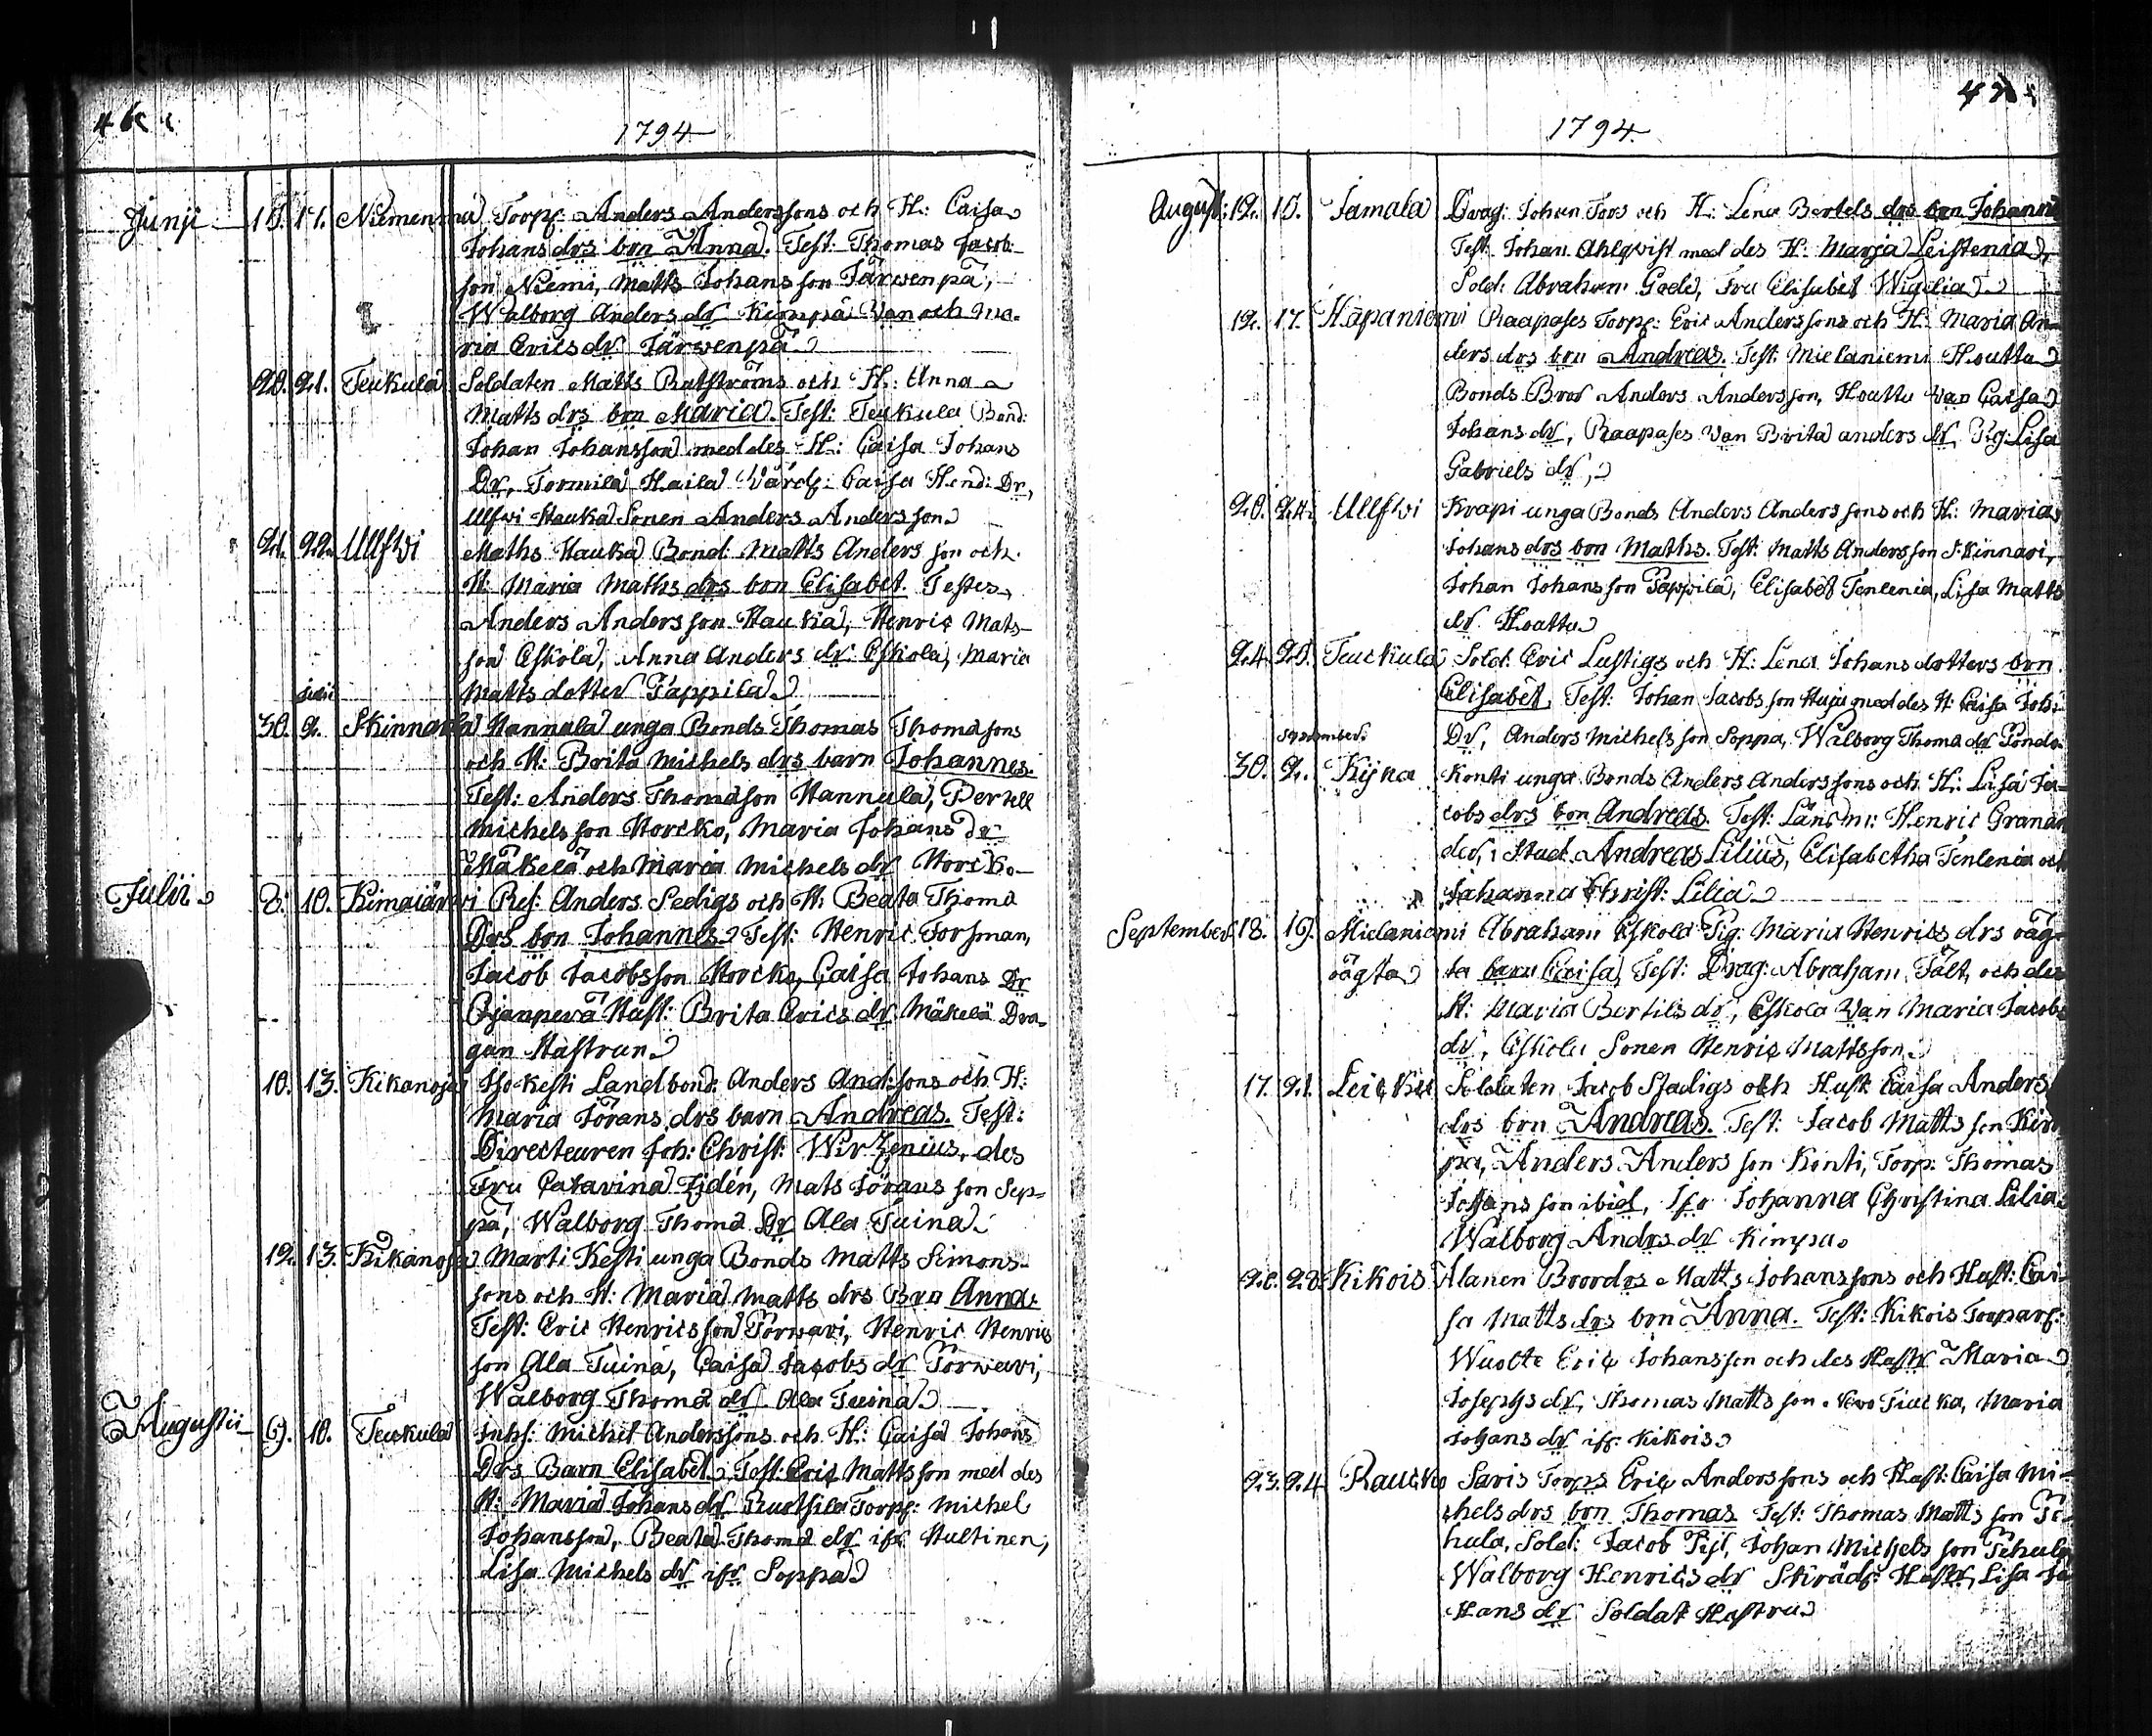 46
1794
Junji 15. 17. Niemenmä Torp: Anders Anderssons och H: Caisa
Johans drs brn Anna. Test: Thomas Jacob-
son Niemi, Matts Johans son Järwenpä,
Walborg Anders dr Kimpä Van och Ma-
ria Erics dr Järwenpä
20. 21. Teukula Soldaten Matts Ratströms och H: Anna
Matts drs brn Maria. Test: Teukula Bond:
Johan Johansson med des H: Caisa Johans
Dr, Tormilä Haila Värdf: Caisa Hend: Dr,
Ullfwi Hauka Sonen Anders Andersson
21. 22. Ullfwi Maths Hauka Bond: Matts Anders son och
H: Maria Maths drs brn Elisabet. Testes,
Anders Anders son Hauka, Henric Mats-
son Eskola, Anna Anders dr Eskola, Maria
Matts dotter Pappila
Julii
30. 2. Skinnarla Hannula unga Bonds Thomas Thomasons
och H: Brita Michels drs barn Johannes.
Test: Anders Thomason Hannula, Bertill
Michels son Horcko, Maria Johans Dr
Mäkelä och Maria Michels dr Horcko
Julii 8. 10. Kimaiärwi Ref: Anders Sedigs och H: Beata Thoma
Drs brn Johannes Test: Henric Forsman,
Jacob Jacobsson Horcko, Caisa Johans Dr
Ojanperä Hust: Brita Erics dr Mäkelä Dra-
gun Hustrun
10. 13. Kikanoja Iso-Kesti Landbond: Anders And:sons och H:
Maria Jörans drs barn Andreas. Test:
Directeuren Joh: Christ: Wirzenius, des
Fru Catarina Zidén, Mats Jörans son Sep-
pä, Walborg Thoma Dr Ala Tuina
12. 13. Kikanoja Marti Kesti unga Bonds Matts Simons-
sons och H: Maria Matts drs Brn Anna.
Test: Eric Henricsson Torwari, Henric Henrics
son Ala Tuina, Caisa Jacobs dr Torwari,
Walborg Thoma dr Ala Tuina
Augustii 9. 10. Teukula Inhs: Michel Anderssons och H: Caisa Johans
Drs Barn Elisabet. Test: Eric Mattsson med des
H: Maria Johans dr Ruotsila Torp: Michel
Johansson, Beata Thoma dr ifr Hultinen,
Lisa Michels dr ifr Soppa
47
1794
August: 12. 15. Jamala Drag: Johan Fors och H: Lena Bertels drs brn Johannes
Test: Johan Ahlqvist med des H: Marja Leistenia,
Sold: Abraham Gode, Fru Elisabet Wigelia
12. 17. Hapaniemi Raapases Torp: Eric Anderssons och H: Maria An-
ders drs brn Andreas. Test: Mielaniemi Houttu
Bonds Bror Anders Andersson, Houttu Van Caisa
Johans dr, Raapases Van Brita anders dr, Pig: Lisa
Gabriels dr,
20. 24. Ullfwi Krapi unga Bonds Anders Anderssons och H: Maria
Johans drs brn Maths. Test: Matts Andersson Skinnari,
Johan Johansson Pappila, Elisabet Tenlenia, Lisa Matts
dr Houttu
24. 25. Teuckula Sold: Eric Lustigs och H: Lena Johans dotters brn
Elisabet, Test: Johan Jacobs son Huju med des H: Caisa Joh:
Dr, Anders Michels son Soppa, Walborg Thoma dr Pondo
September
30. 2. Kijna Konti unga Bonds Anders Anderssons och H: Lisa Ja-
cobs drs brn Andreas. Test: Länsm: Henric Granan
der, Stud: Andreas Lilius, Elisabetha Tenlenia och
Johanna Christ: Lilia
September 18. 19. Mielaniemi Abraham Eskola Pig: Maria Henrics drs oäg-
oägta ta barn Caisa, Test: Drag: Abraham Fält, och des
H: Maria Bertils dr, Eskola Van Maria Jacobs
dr, Eskola Sonen Henric Mattsson
17. 21. Leickki Soldaten Jacob Stadigs och Hust: Caisa Anders
drs brn Andreas. Test: Jacob Matts son Kim
pa, Anders Anders son Konti, Torp: Thomas
Johans son ibid, Jfr Johanna Christina Lilia
Walborg Andrs dr Kimpa
26. 28. Kikois Alanen Broordrs Matts Johanssons och Hust: Cai-
sa Matts drs brn Anna. Test: Kikois Torparf:
Wuolte Eric Johansson och des Hustr Maria
Josephs dr, Thomas Matts son Tiucka, Maria
Johans dr ifr Kikois
23. 24 Raucko Saris Torps Eric Anderssons och Hust: Caisa Mi-
chels drs brn Thomas Test: Thomas Matts son Te-
hula, Sold: Jacob Pist, Johan Michels son Tehula
Walborg Henrics dr Skrädf: Hustr, Lisa Jo
hans dr Soldat Hustru